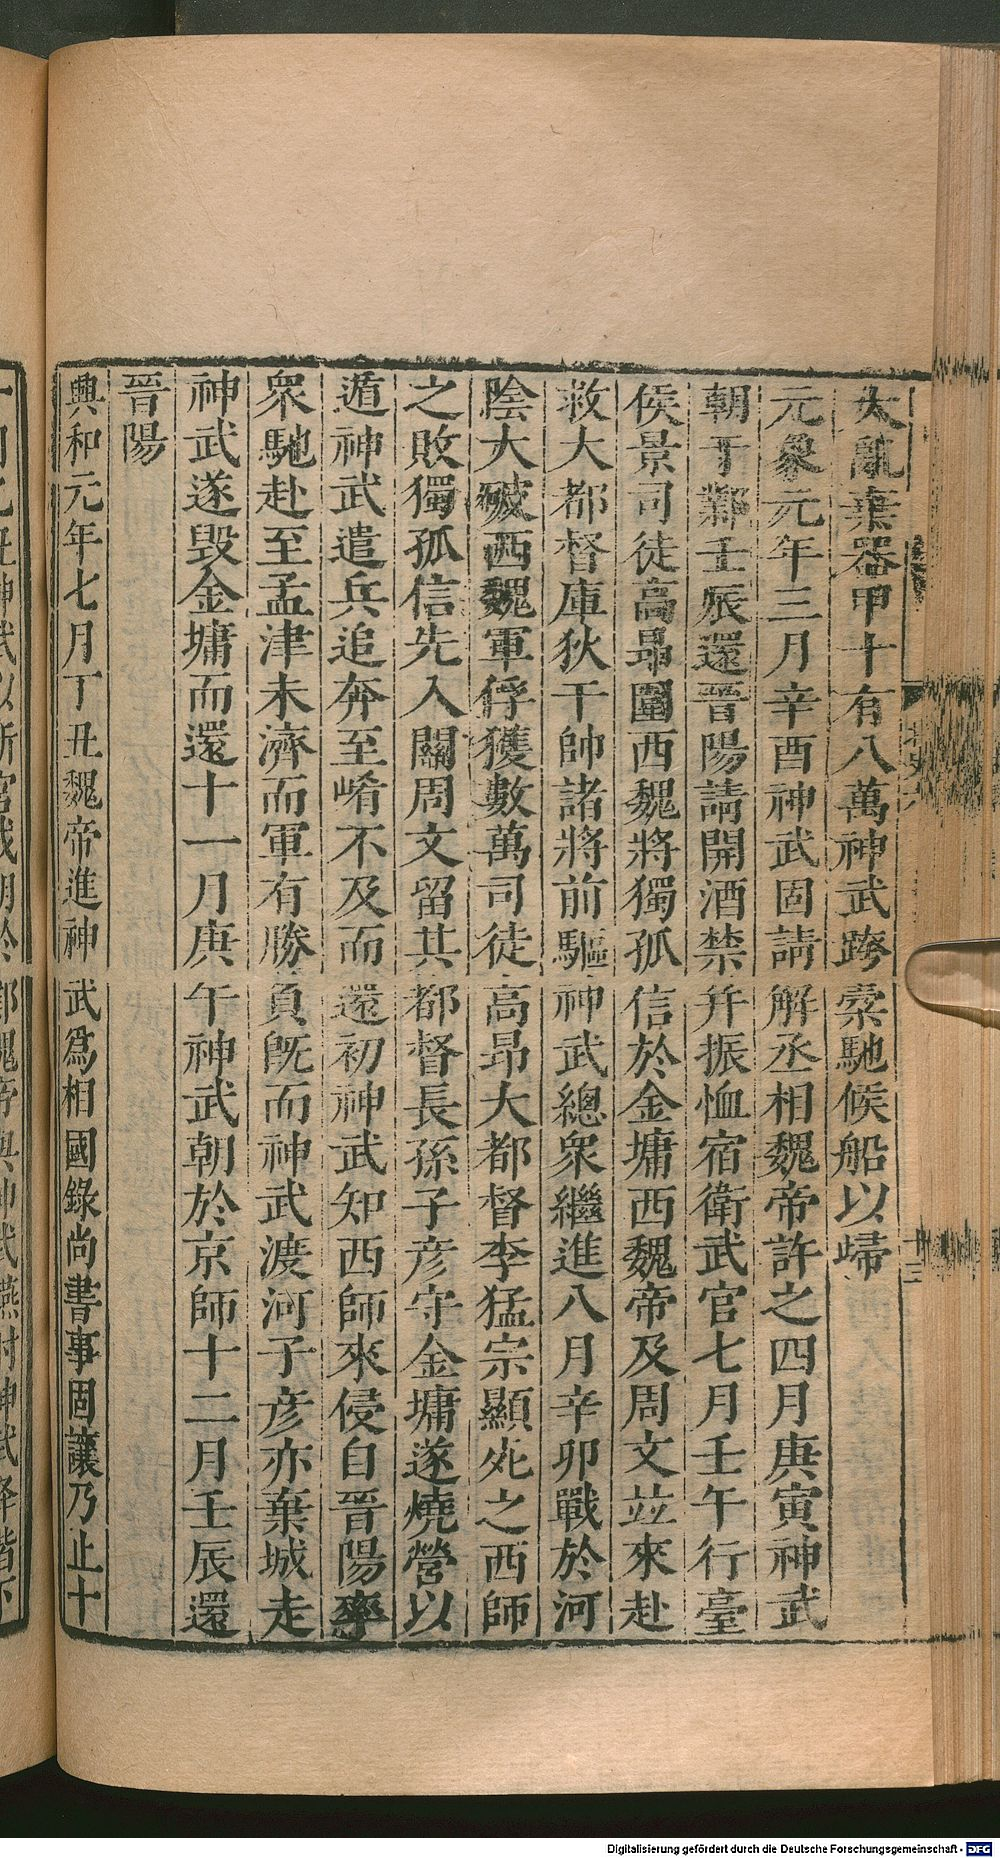 大亂棄器甲十有八萬神武跨橐馳候船以歸
元象元年三月辛酉神武固請解丞相魏帝許之四月庚寅神武
朝于鄴壬辰還晉陽請開酒禁幷振恤宿衛武官七月壬午行臺
侯景司徒高昂圍西魏將獨孤信於金墉西魏帝及周文並來赴
救大都督庫狄干帥諸將前驅神武總衆繼進八月辛卯戰於河
陰大破西魏軍俘獲數萬司徒高昂大都督李猛宗顯死之西師
之敗獨孤信先入關周文留其都督長孫子彥守金墉遂燒營以
遁神武遣兵追奔至崤不及而還初神武知西師來侵自晉陽率
衆馳赴至孟津未濟而軍有勝負旣而神武渡河子彥亦棄城走
神武遂毀金墉而還十一月庚午神武朝於京師十二月壬辰還
晉陽
興和元年七月丁丑魏帝進神武爲相國錄尚書事固讓乃止十
Digitalisierung gefördert durch die Deutsche Forschungsgemeinschaft - DFG